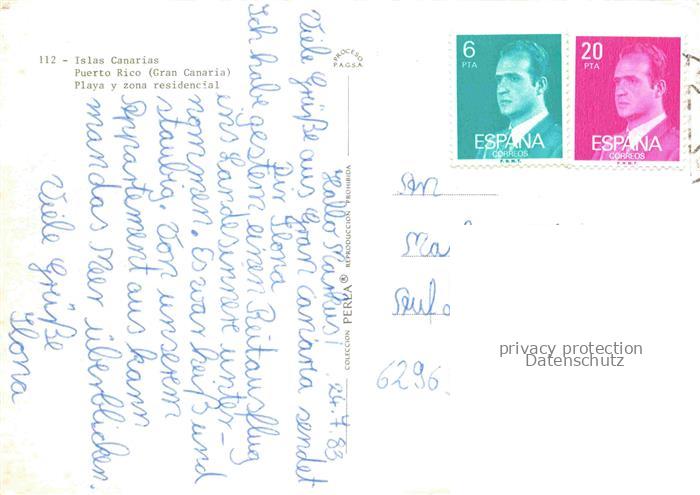 112 - Islas Canarias
Puerto Rico (Gran Canaria)
Playa y zona residencial
PROCESO
P.A.G.S.A.
6
PTA
ESPAÑA
CORREOS
F.N.M.T.
20
PTA
ESPAÑA
CORREOS
F.N.M.T.
24.7.83
Hallo Markus!
Viele Grüße aus Gran Canaria sendet
Dir Ilona
Ich habe gestern einen Reitausflug
ins Landesinnere unter-
nommen. Es war heiß und
staubig. Von unserem
Appartement aus kann
man das Meer überblicken.
Viele Grüße
Ilona
COLECCION PERLA® REPRODUCCION PROHIBIDA
An
Ma
6296
privacy protection
Datenschutz